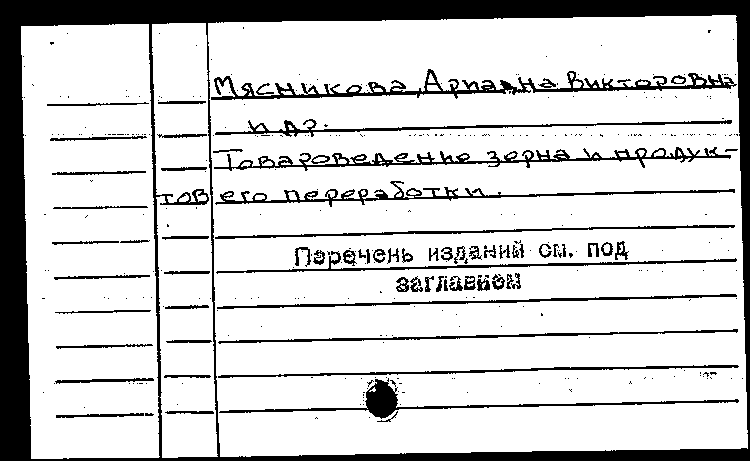 Мясникова, Ариадна Викторовна
и др.
Товароведение зерна и продук-
тов его переработки.
Перечень изданий см. под
заглавием